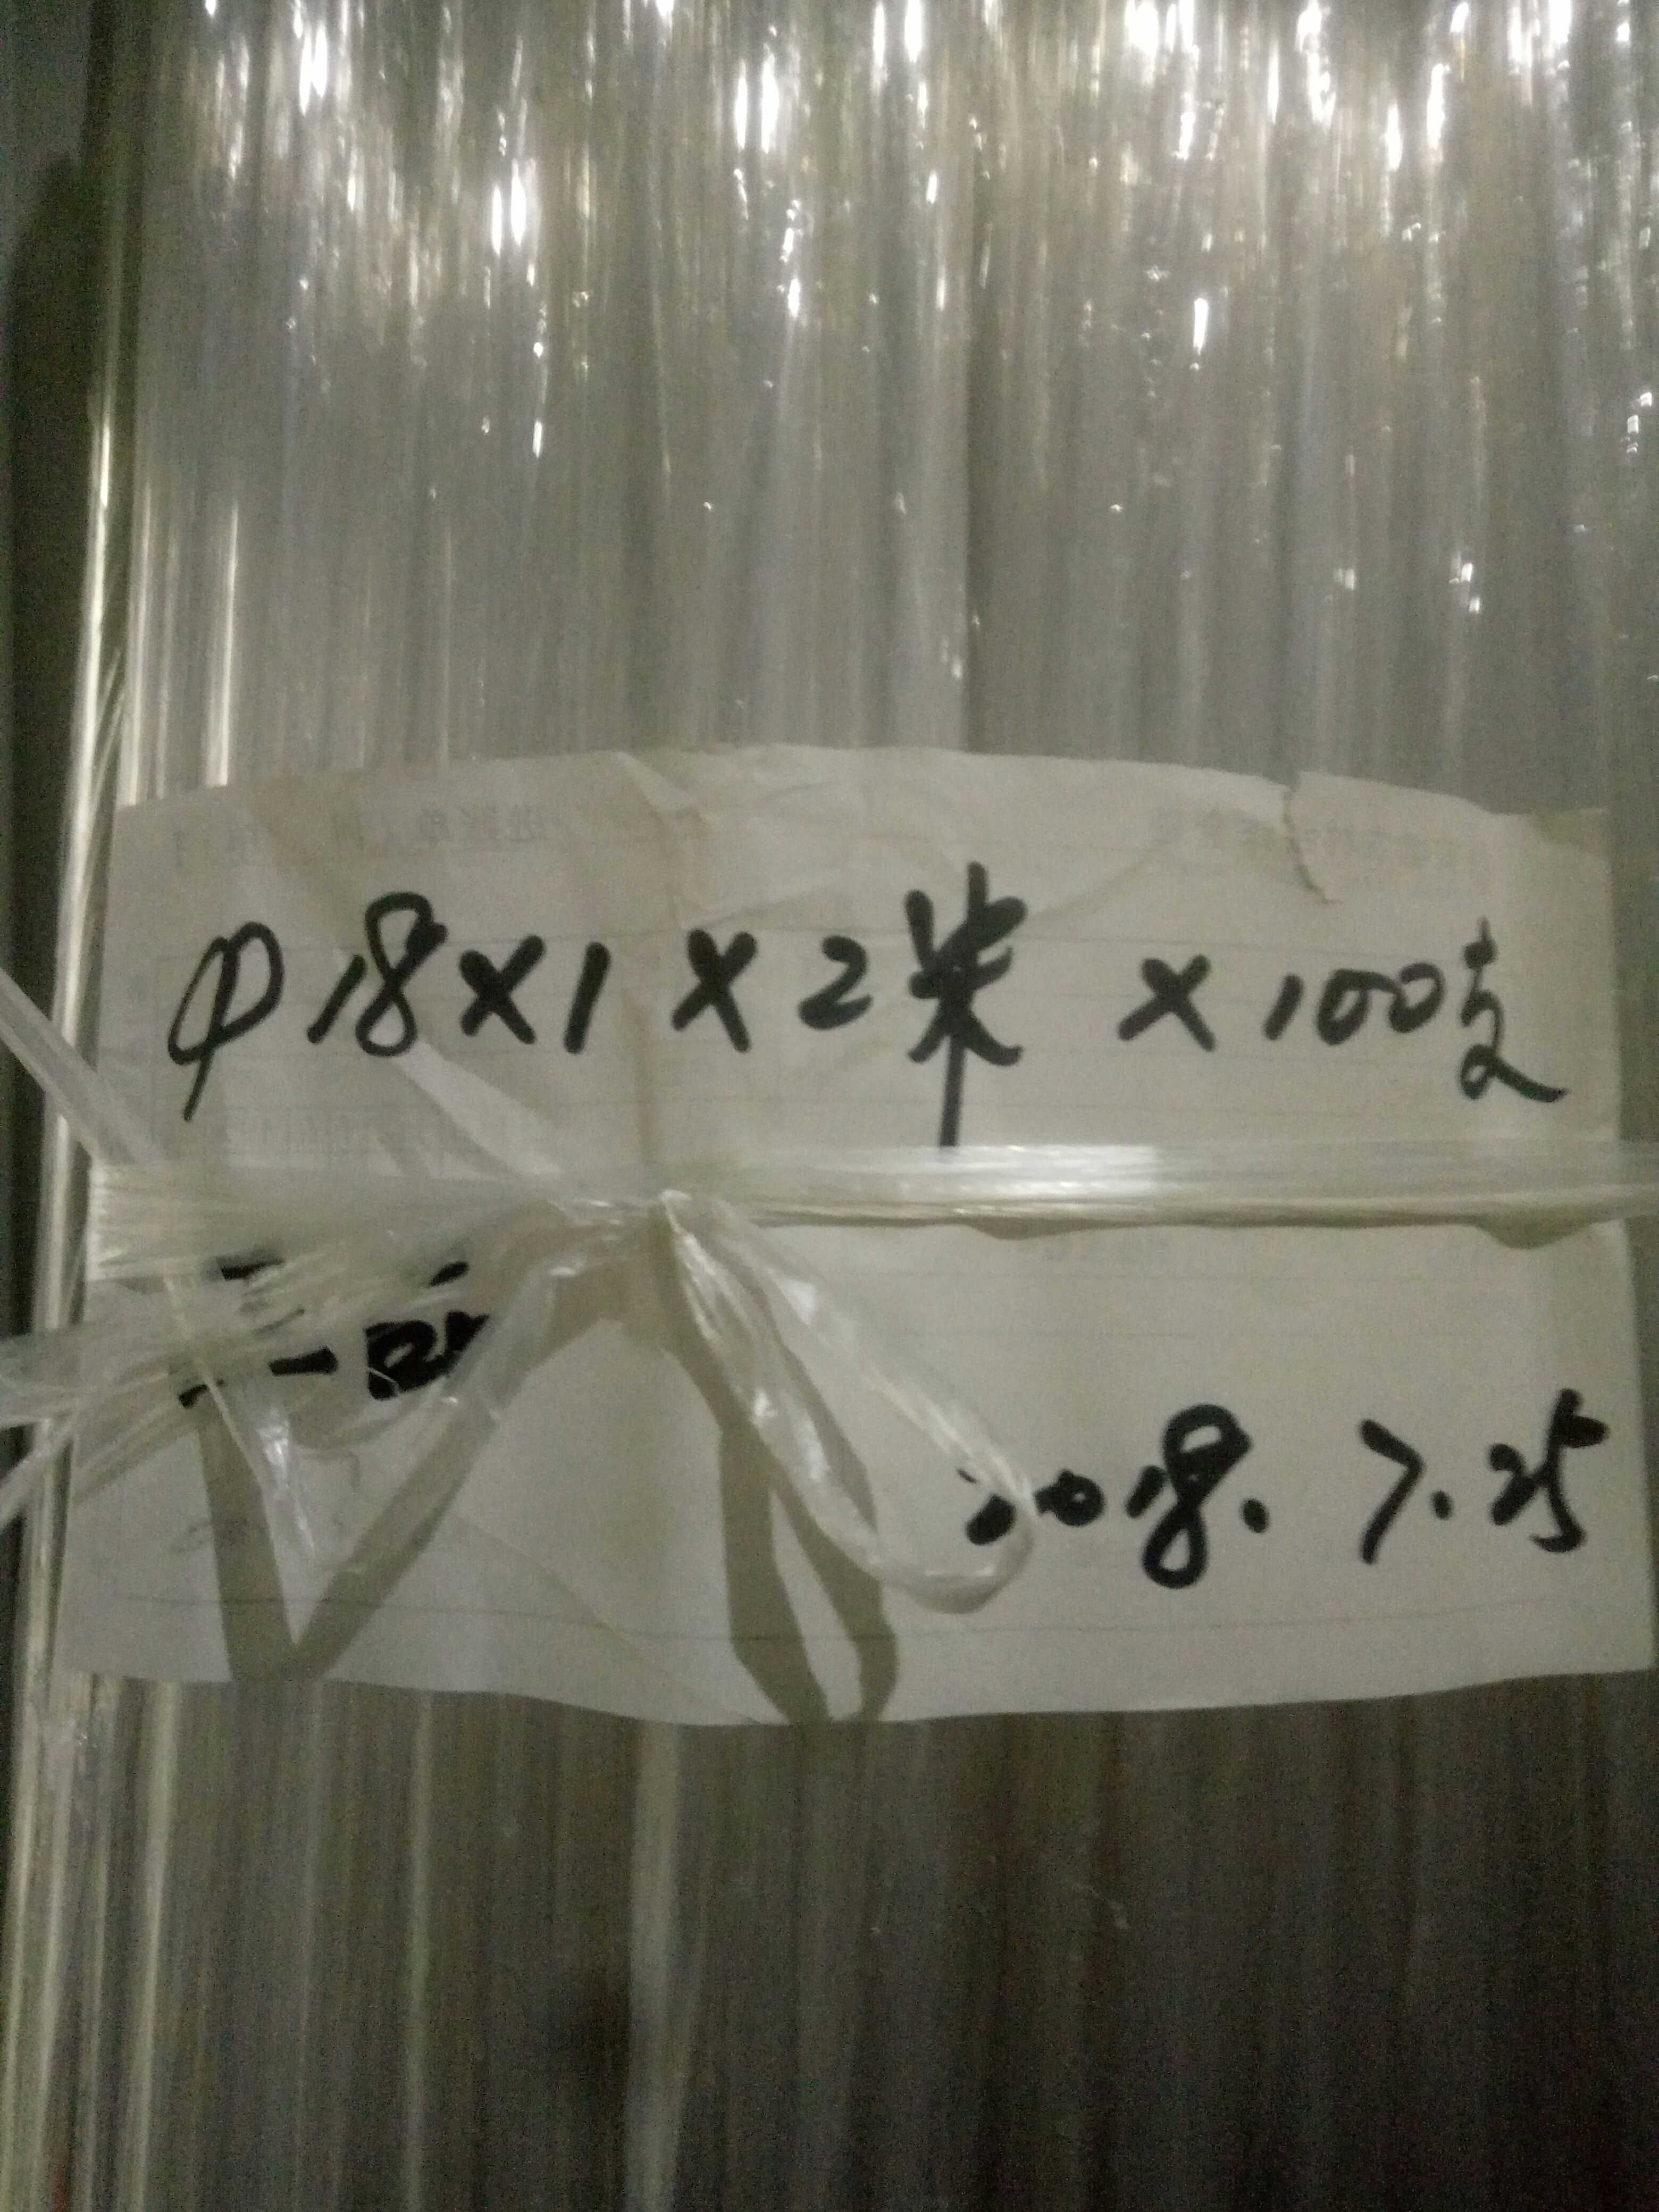 Φ18×1×2米 ×100支
2018.7.25